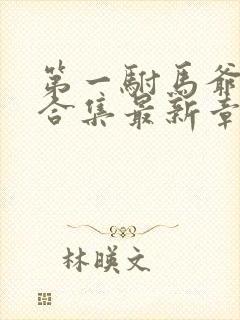 第一駙馬爺
合集最新章
林暎文